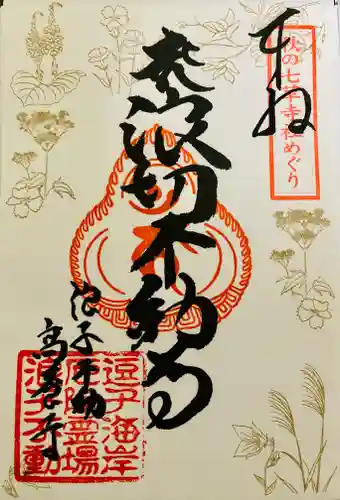 秋の七草寺社めぐり
波切不動
浪子不動
高養寺
逗子海岸
厄除霊場
浪子不動